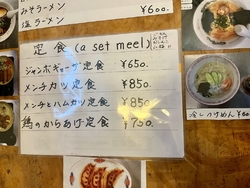 みそラーメン
塩ラーメン ¥600.
定食 (a set meel)
ジャンボギョーザ定食 ¥650.
メンチカツ定食 ¥850
メンチとハムカツ定食 ¥850
鶏のからあげ定食 ¥750.
冷しつけめん